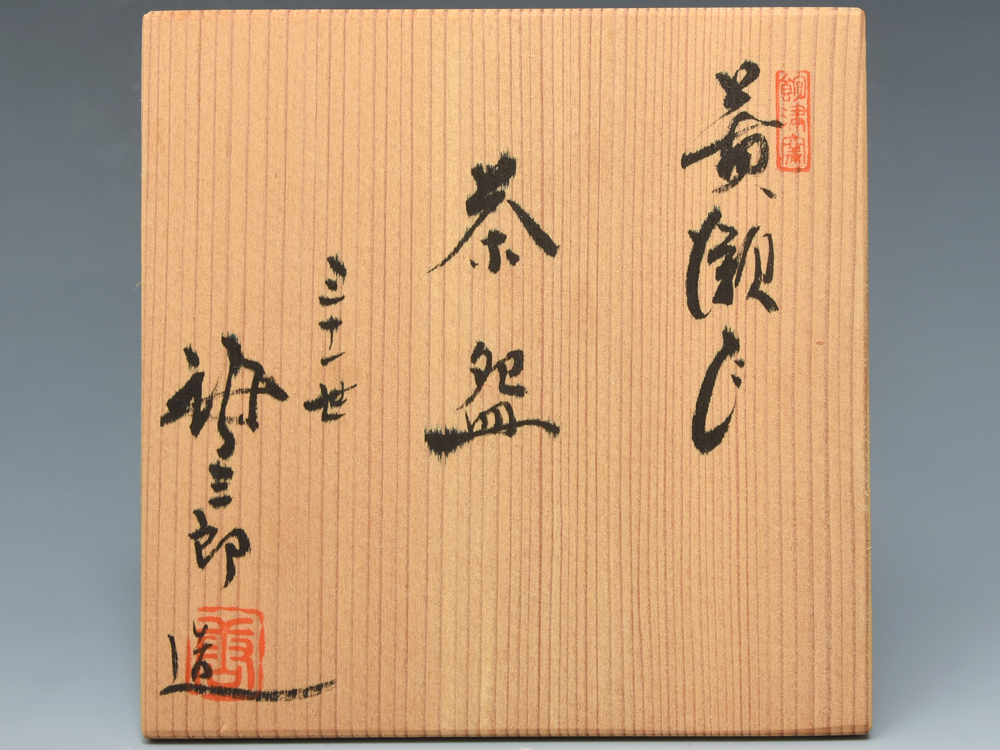 黄瀬戸
茶盌
三十一世
唐三郎
造